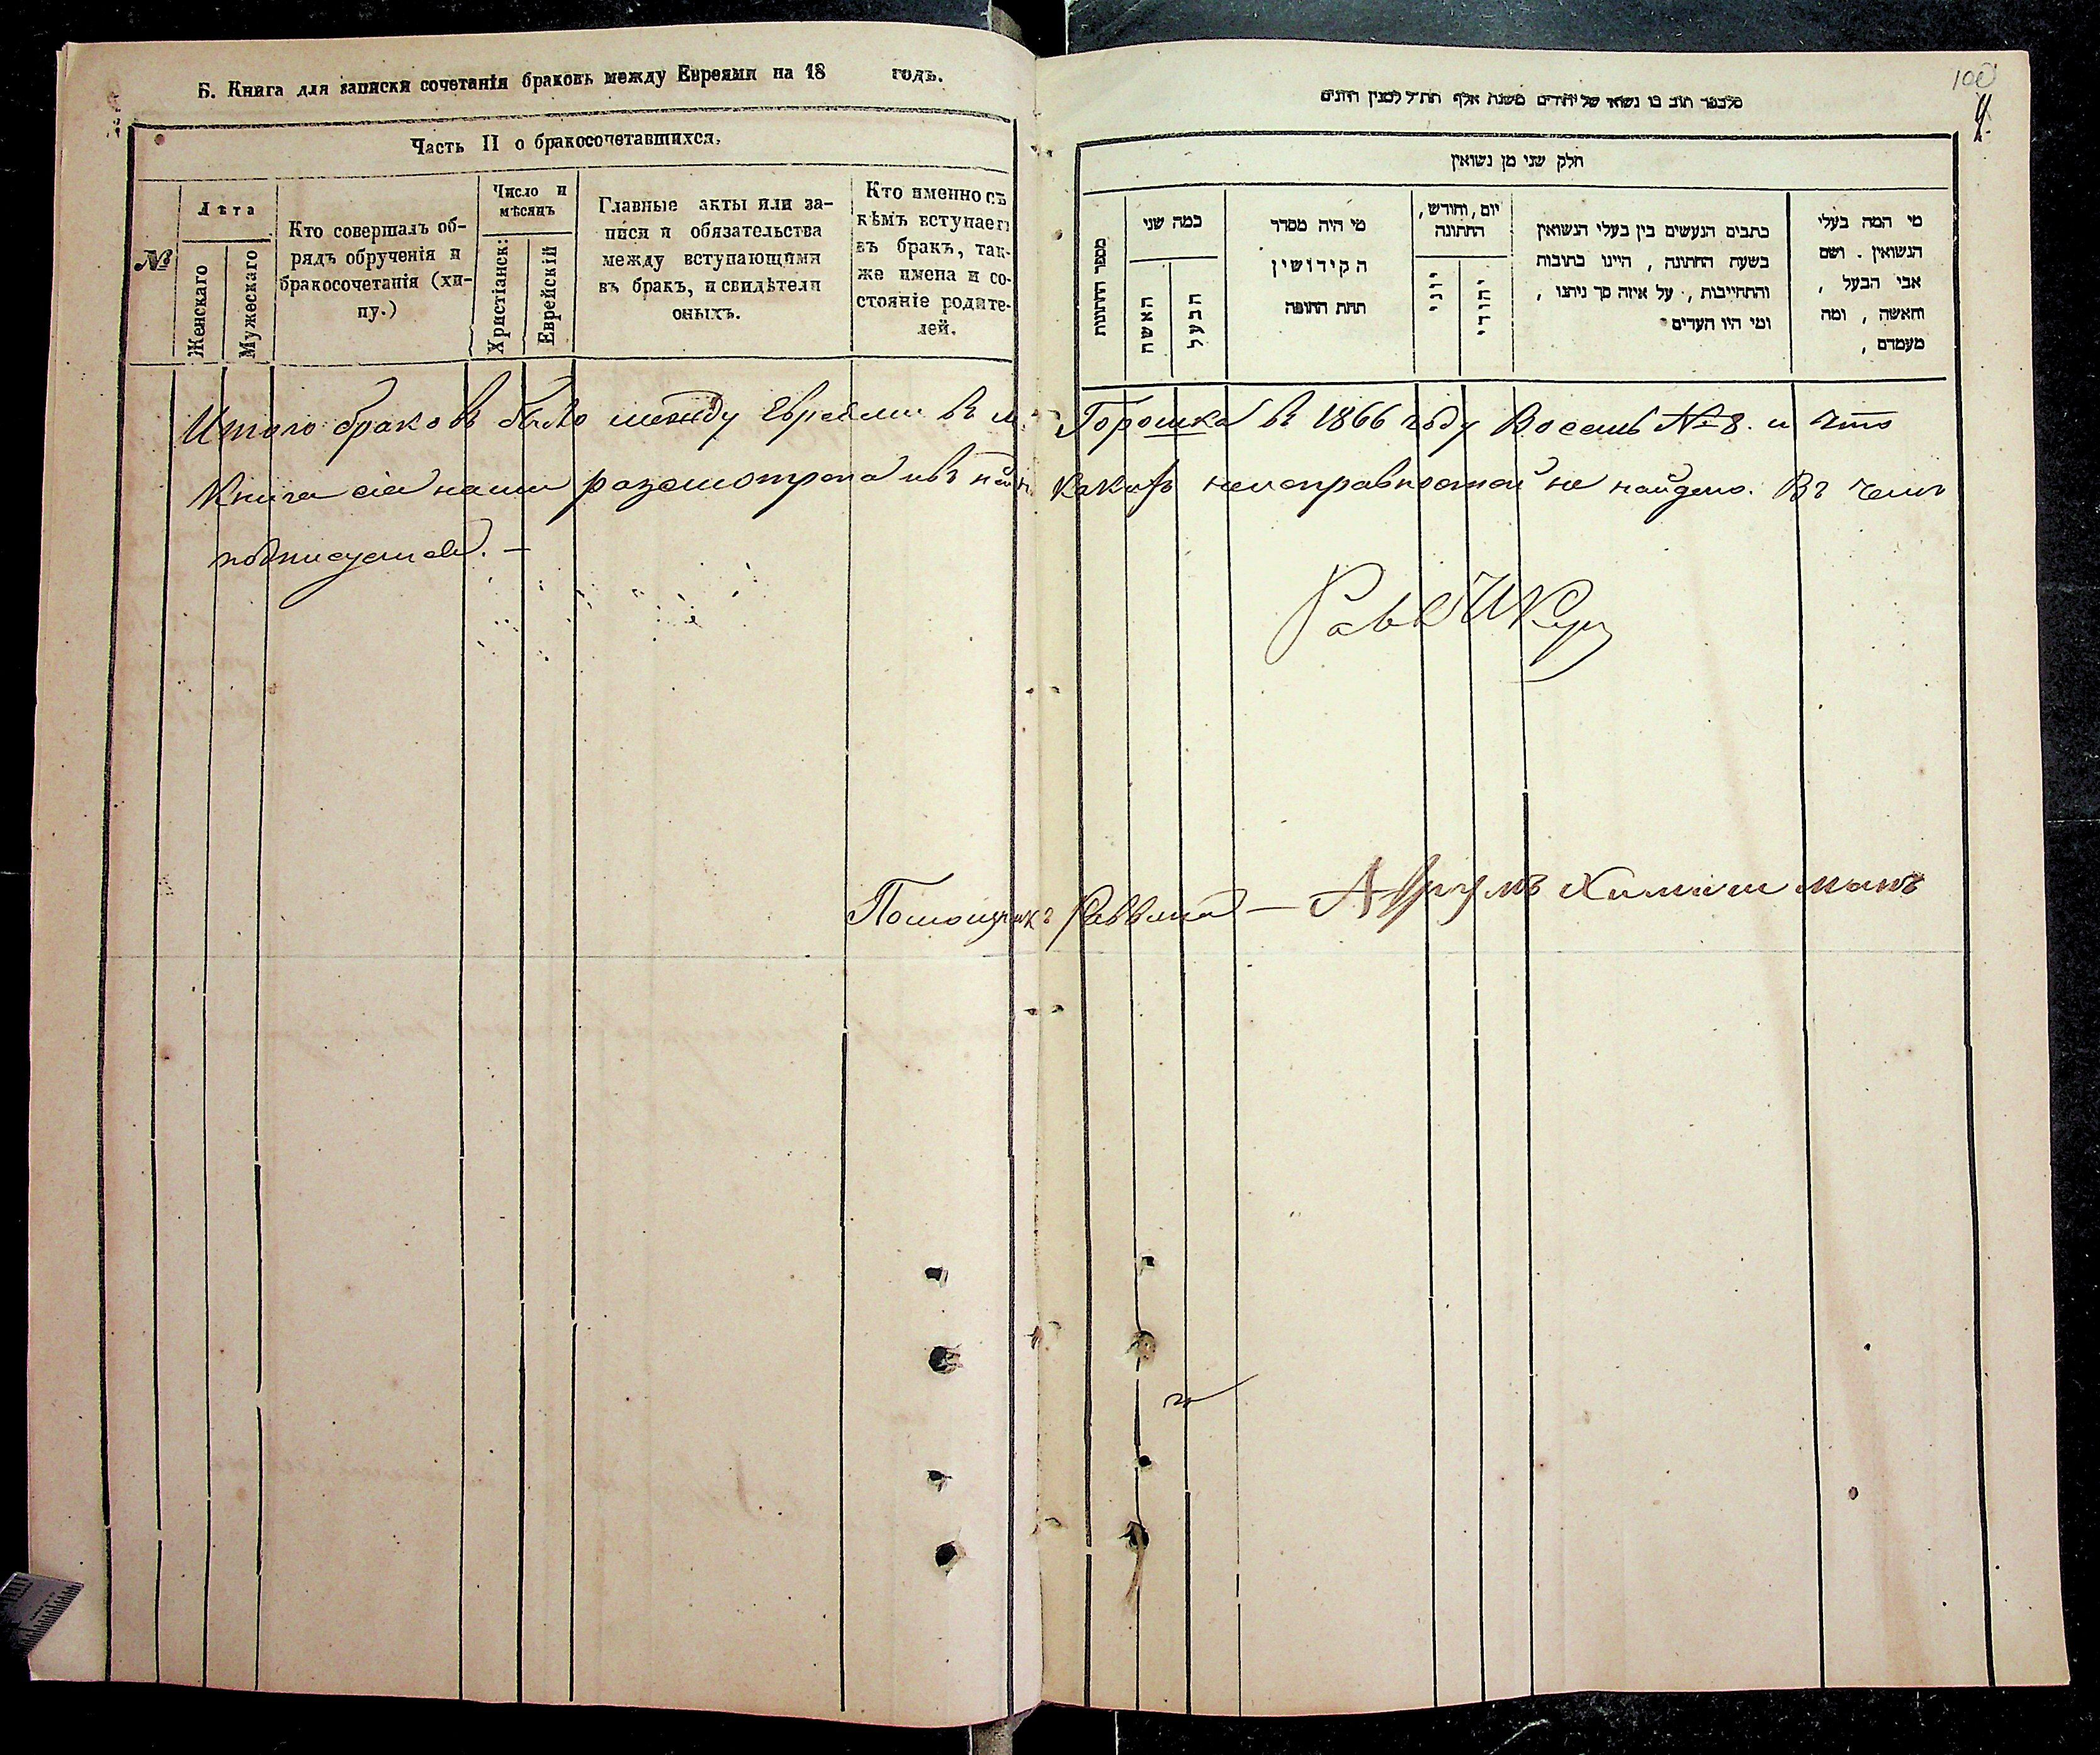 Б. Книга для записки сочетанія браковъ между Евреями на 18 годъ.
Часть II о бракосочетавшихся.
№
Лѣта
Женскаго
Мужескаго
Кто совершалъ об-
рядъ обрученія и
бракосочетанія (хи-
пу.)
Число и
мѣсяцъ
Христіанск:
Еврейскій
Главные акты или за-
писи и обязательства
между вступающими
въ бракъ, и свидѣтели
оныхъ.
Кто именно съ
кѣмъ вступаетъ
въ бракъ, так-
же имена и со-
стояніе родите-
лей.
100
חלק שני מן נשואין
מספר החתונות
כמה שני
האשה
הבעל
מי היה מסדר
הקידושין
תחת החופה
יום, וחודש,
החתונה
יוני
יהודי
כתבים הנעשים בין בעלי הנשואין
בשעת החתונה, היינו כתובות
והתחייבות, על איזה סך ניתנו,
ומי היו העדים
מי המה בעלי
הנשואין. ושם
אבי הבעל,
והאשה, ומה
מעמדם,
Итого браковъ было между Евреями въ м. Горошкахъ въ 1866 году Восемь № 8. и что
Книга сія нами разсмотрена и въ ней ни какихъ неисправностей не найдено. Въ чемъ
подписуемся. —
Помощникъ Раввина — Аврумъ